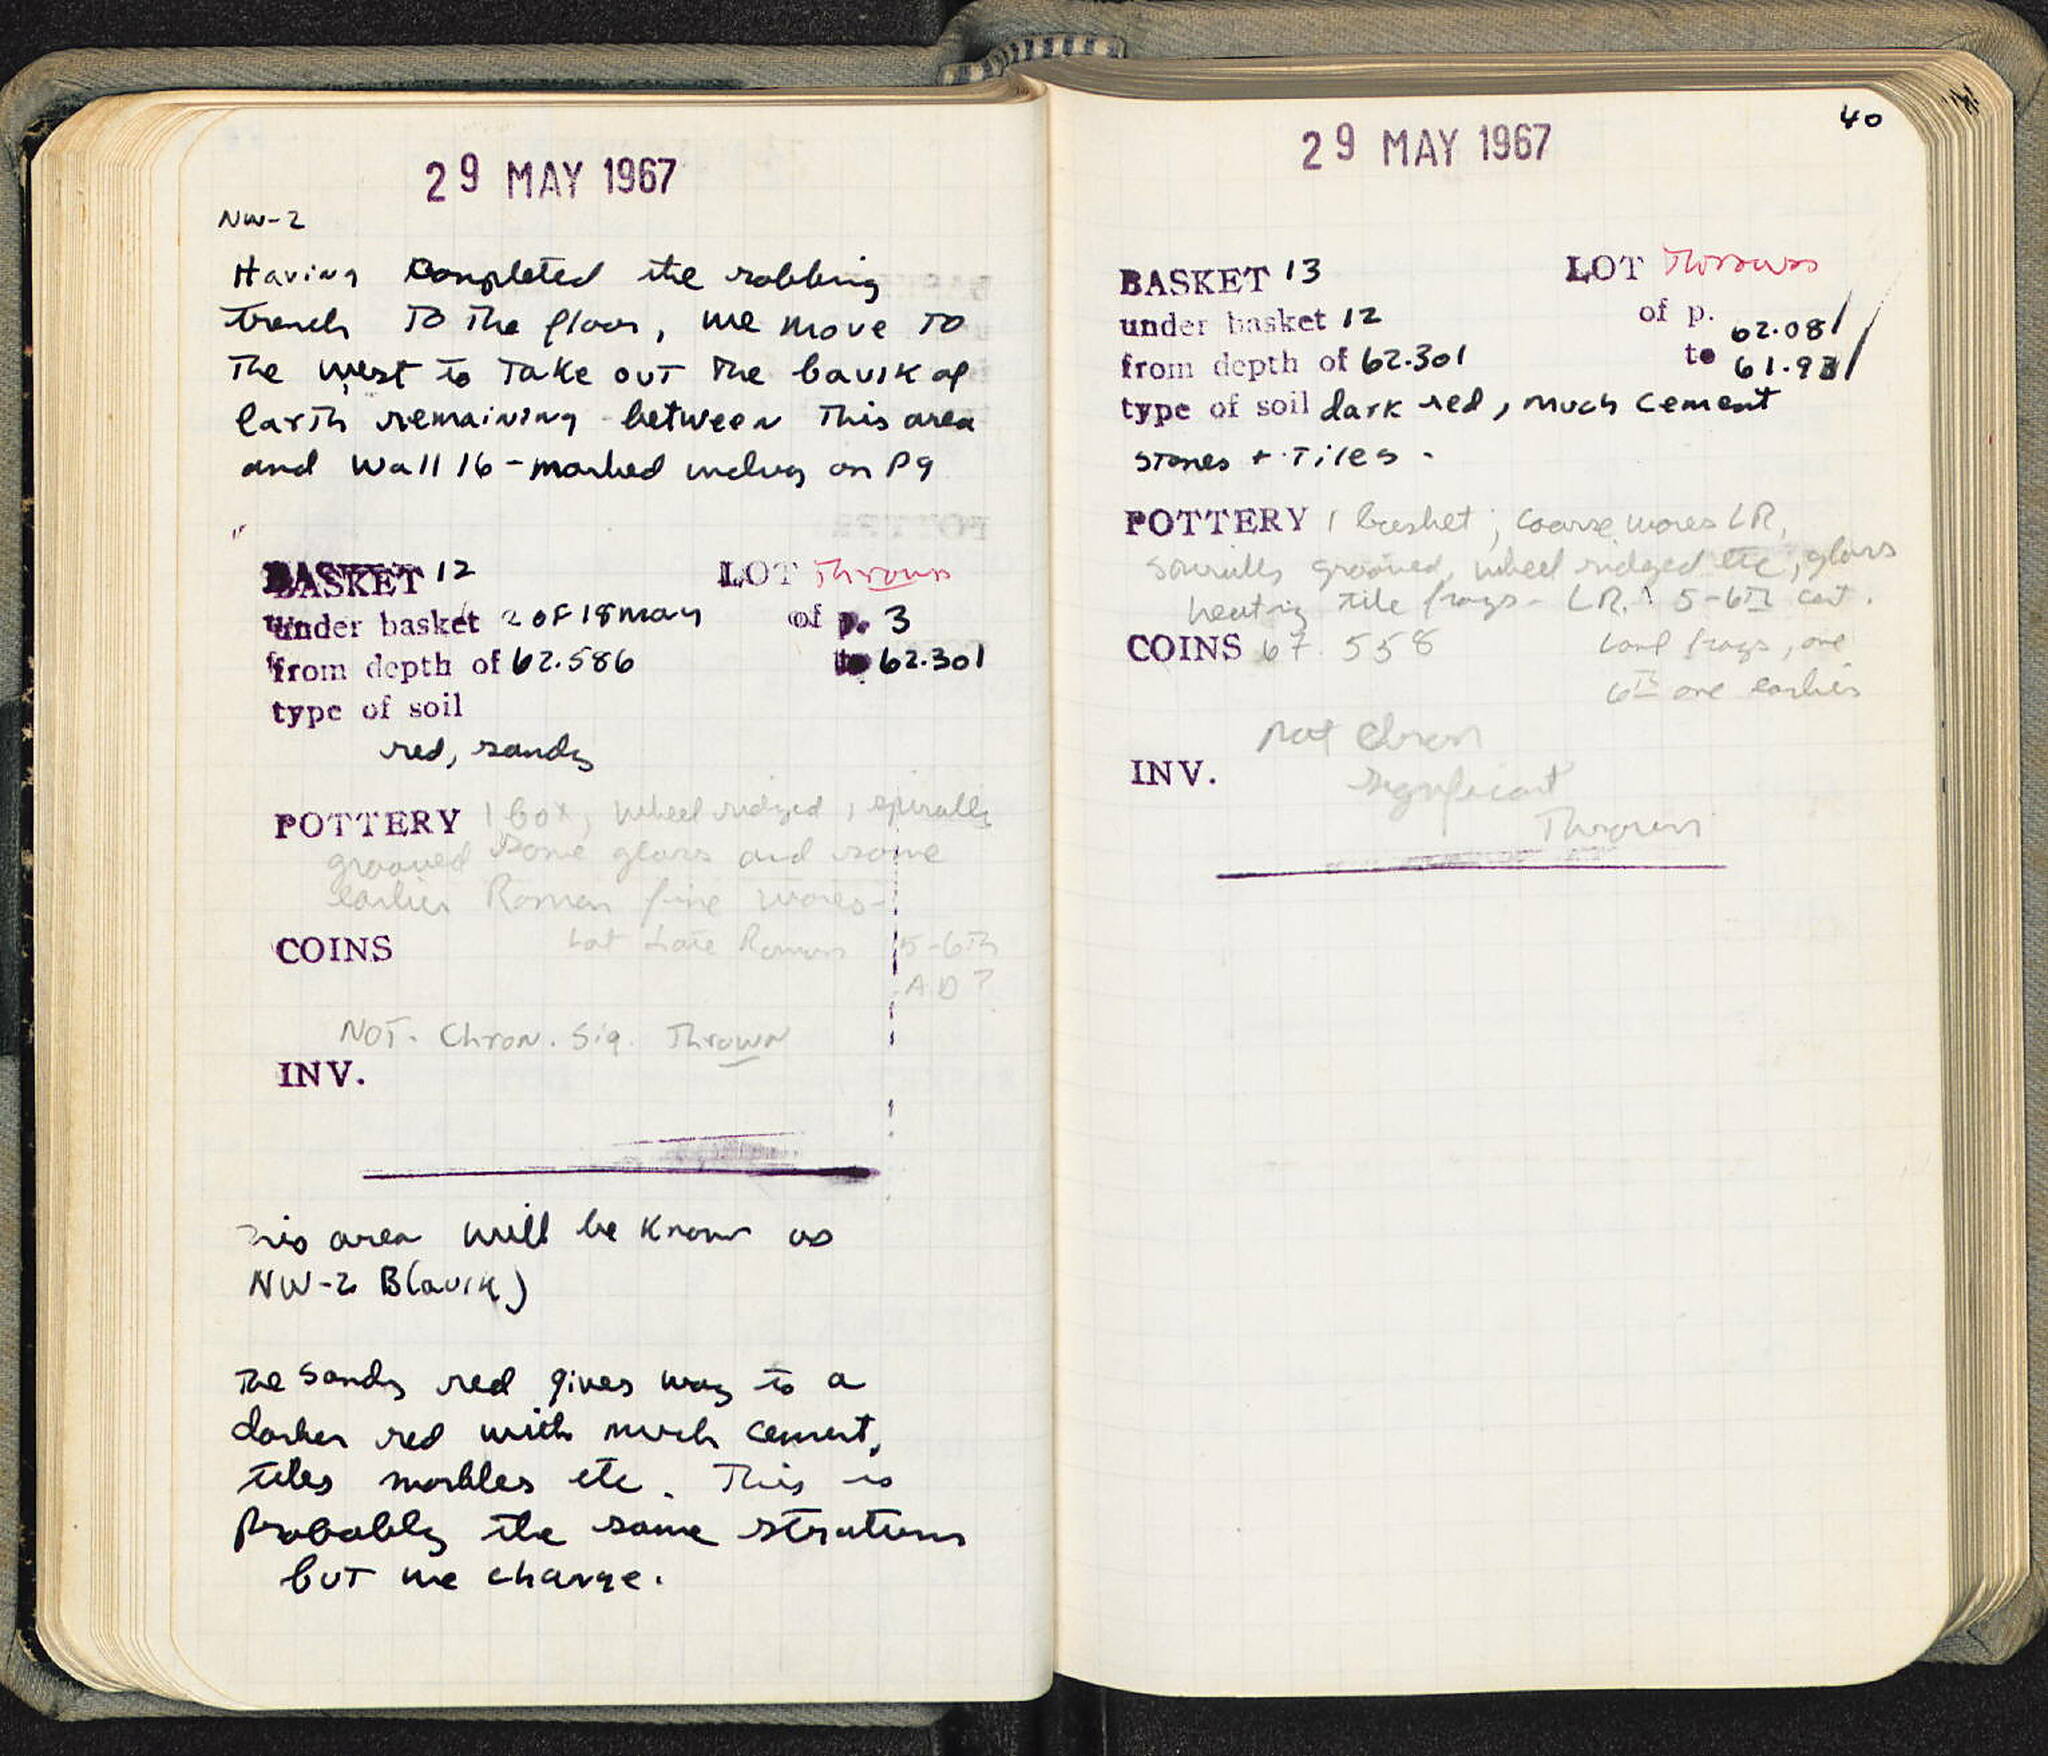 29 MAY 1967
NW-2
Having completed the robbing
trench to the floor, we move to
the west to take out the baulk of
earth remaining between this area
and wall 16 - marked on p 9
BASKET 12 LOT Thrown
under basket 2 of 18 may of p. 3
from depth of 62.586 to 62.301
type of soil
red, sandy
POTTERY 1 box, wheel ridged, spirally
grooved some glass and some
earlier Roman fine wares -
COINS Lot Late Roman 5-6th
AD?
NOT. Chron. Sig. Thrown
INV.
This area will be known as
NW-2 B(aulk)
The sandy red gives way to a
darker red with much cement,
tiles marbles etc. This is
Probably the same stratum
but we change.
40
29 MAY 1967
BASKET 13 LOT Thrown
under basket 12 of p. 62.081
from depth of 62.301 to 61.931
type of soil dark red, much cement
stones + tiles -
POTTERY 1 basket; coarse wares LR,
spirally grooved, wheel ridged etc; glass
heating tile frags - LR. 5-6th cent.
COINS 67.558 Lamp frags, one
6th one earlier
Not Chron
INV. significant
Thrown